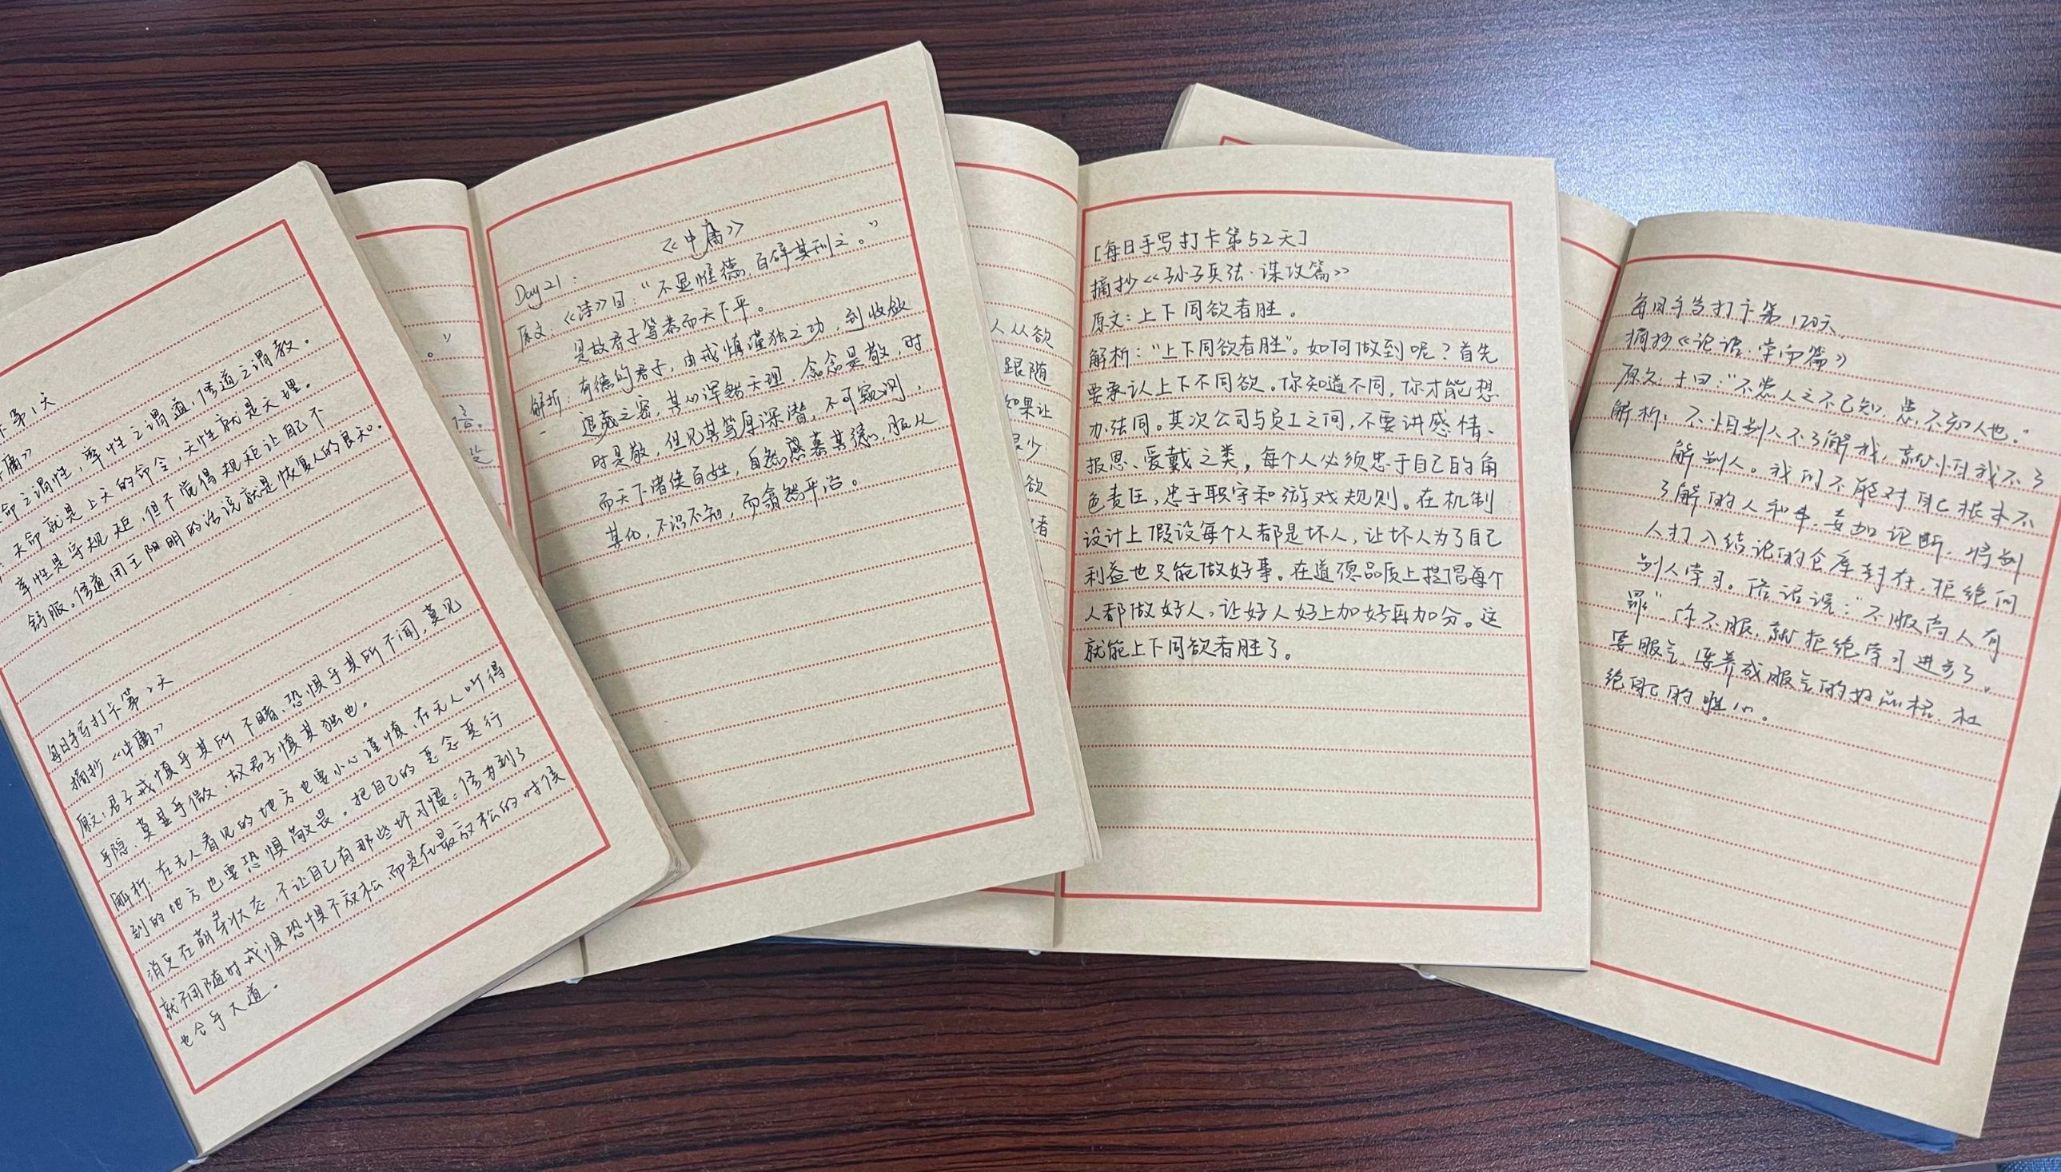 卡第1天
庸》
命之谓性,率性之谓道,修道之谓教。
天命就是上天的命令,天性就是天理。
率性是守规矩,但不觉得规矩让自己不
舒服。修道用王阳明的话说就是恢复人的良知。
每日手写打卡第2天
摘抄《中庸》
原文:君子戒慎乎其所不睹,恐惧乎其所不闻,莫见
乎隐,莫显乎微,故君子慎其独也。
解析:在无人看见的地方也要小心谨慎,在无人听得
到的地方也要恐惧敬畏。把自己的恶念恶行
消灭在萌芽状态,不让自己有那些坏习惯。修为到了
就不用随时戒慎恐惧不放松,而是在最放松的时候
也合乎大道。
。”
《中庸》
Day21:
原文:《诗》曰:“不显惟德,百辟其刑之。”
是故君子笃恭而天下平。
解析:有德的君子,由戒慎谨独之功,到收敛
退藏之密,其心浑然天理,念念是敬,时
时是敬,但见其笃厚深潜,不可窥测,
而天下诸侯百姓,自然感慕其德,服从
其化,不识不知,而翕然平治。
人从欲
跟随
如果让
很少
欲
者
[每日手写打卡第52天]
摘抄《孙子兵法·谋攻篇》
原文:上下同欲者胜。
解析:“上下同欲者胜”。如何做到呢?首先
要承认上下不同欲。你知道不同,你才能想
办法同。其次公司与员工之间,不要讲感情、
报恩、爱戴之类,每个人必须忠于自己的角
色责任,忠于职守和游戏规则。在机制
设计上假设每个人都是坏人,让坏人为了自己
利益也只能做好事。在道德品质上提倡每个
人都做好人,让好人好上加好再加分。这
就能上下同欲者胜了。
每日手写打卡第120天
摘抄《论语·学而篇》
原文:子曰:“不患人之不己知,患不知人也。”
解析:不怕别人不了解我,就怕我不了
解别人。我们不能对自己根本不
了解的人和事,妄加论断,将别
人打入结论的仓库封存,拒绝向
别人学习。俗话说:“不服高人有
罪”你不服,就拒绝学习进步了。
要服气,培养成服气的好品格,杜
绝自己的雄心。